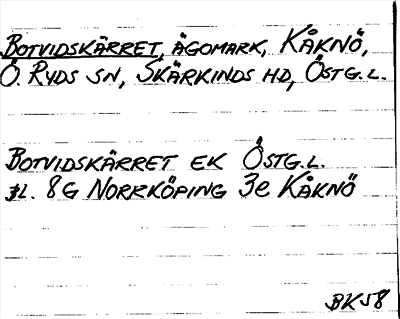 BOTVIDSKÄRRET, ÄGOMARK, KÅKNÖ,
Ö. RYDS SN, SKÄRKINDS HD, ÖSTG.L.
BOTVIDSKÄRRET EK ÖSTG.L.
BL. 8G NORRKÖPING 3e KÅKNÖ
BK58